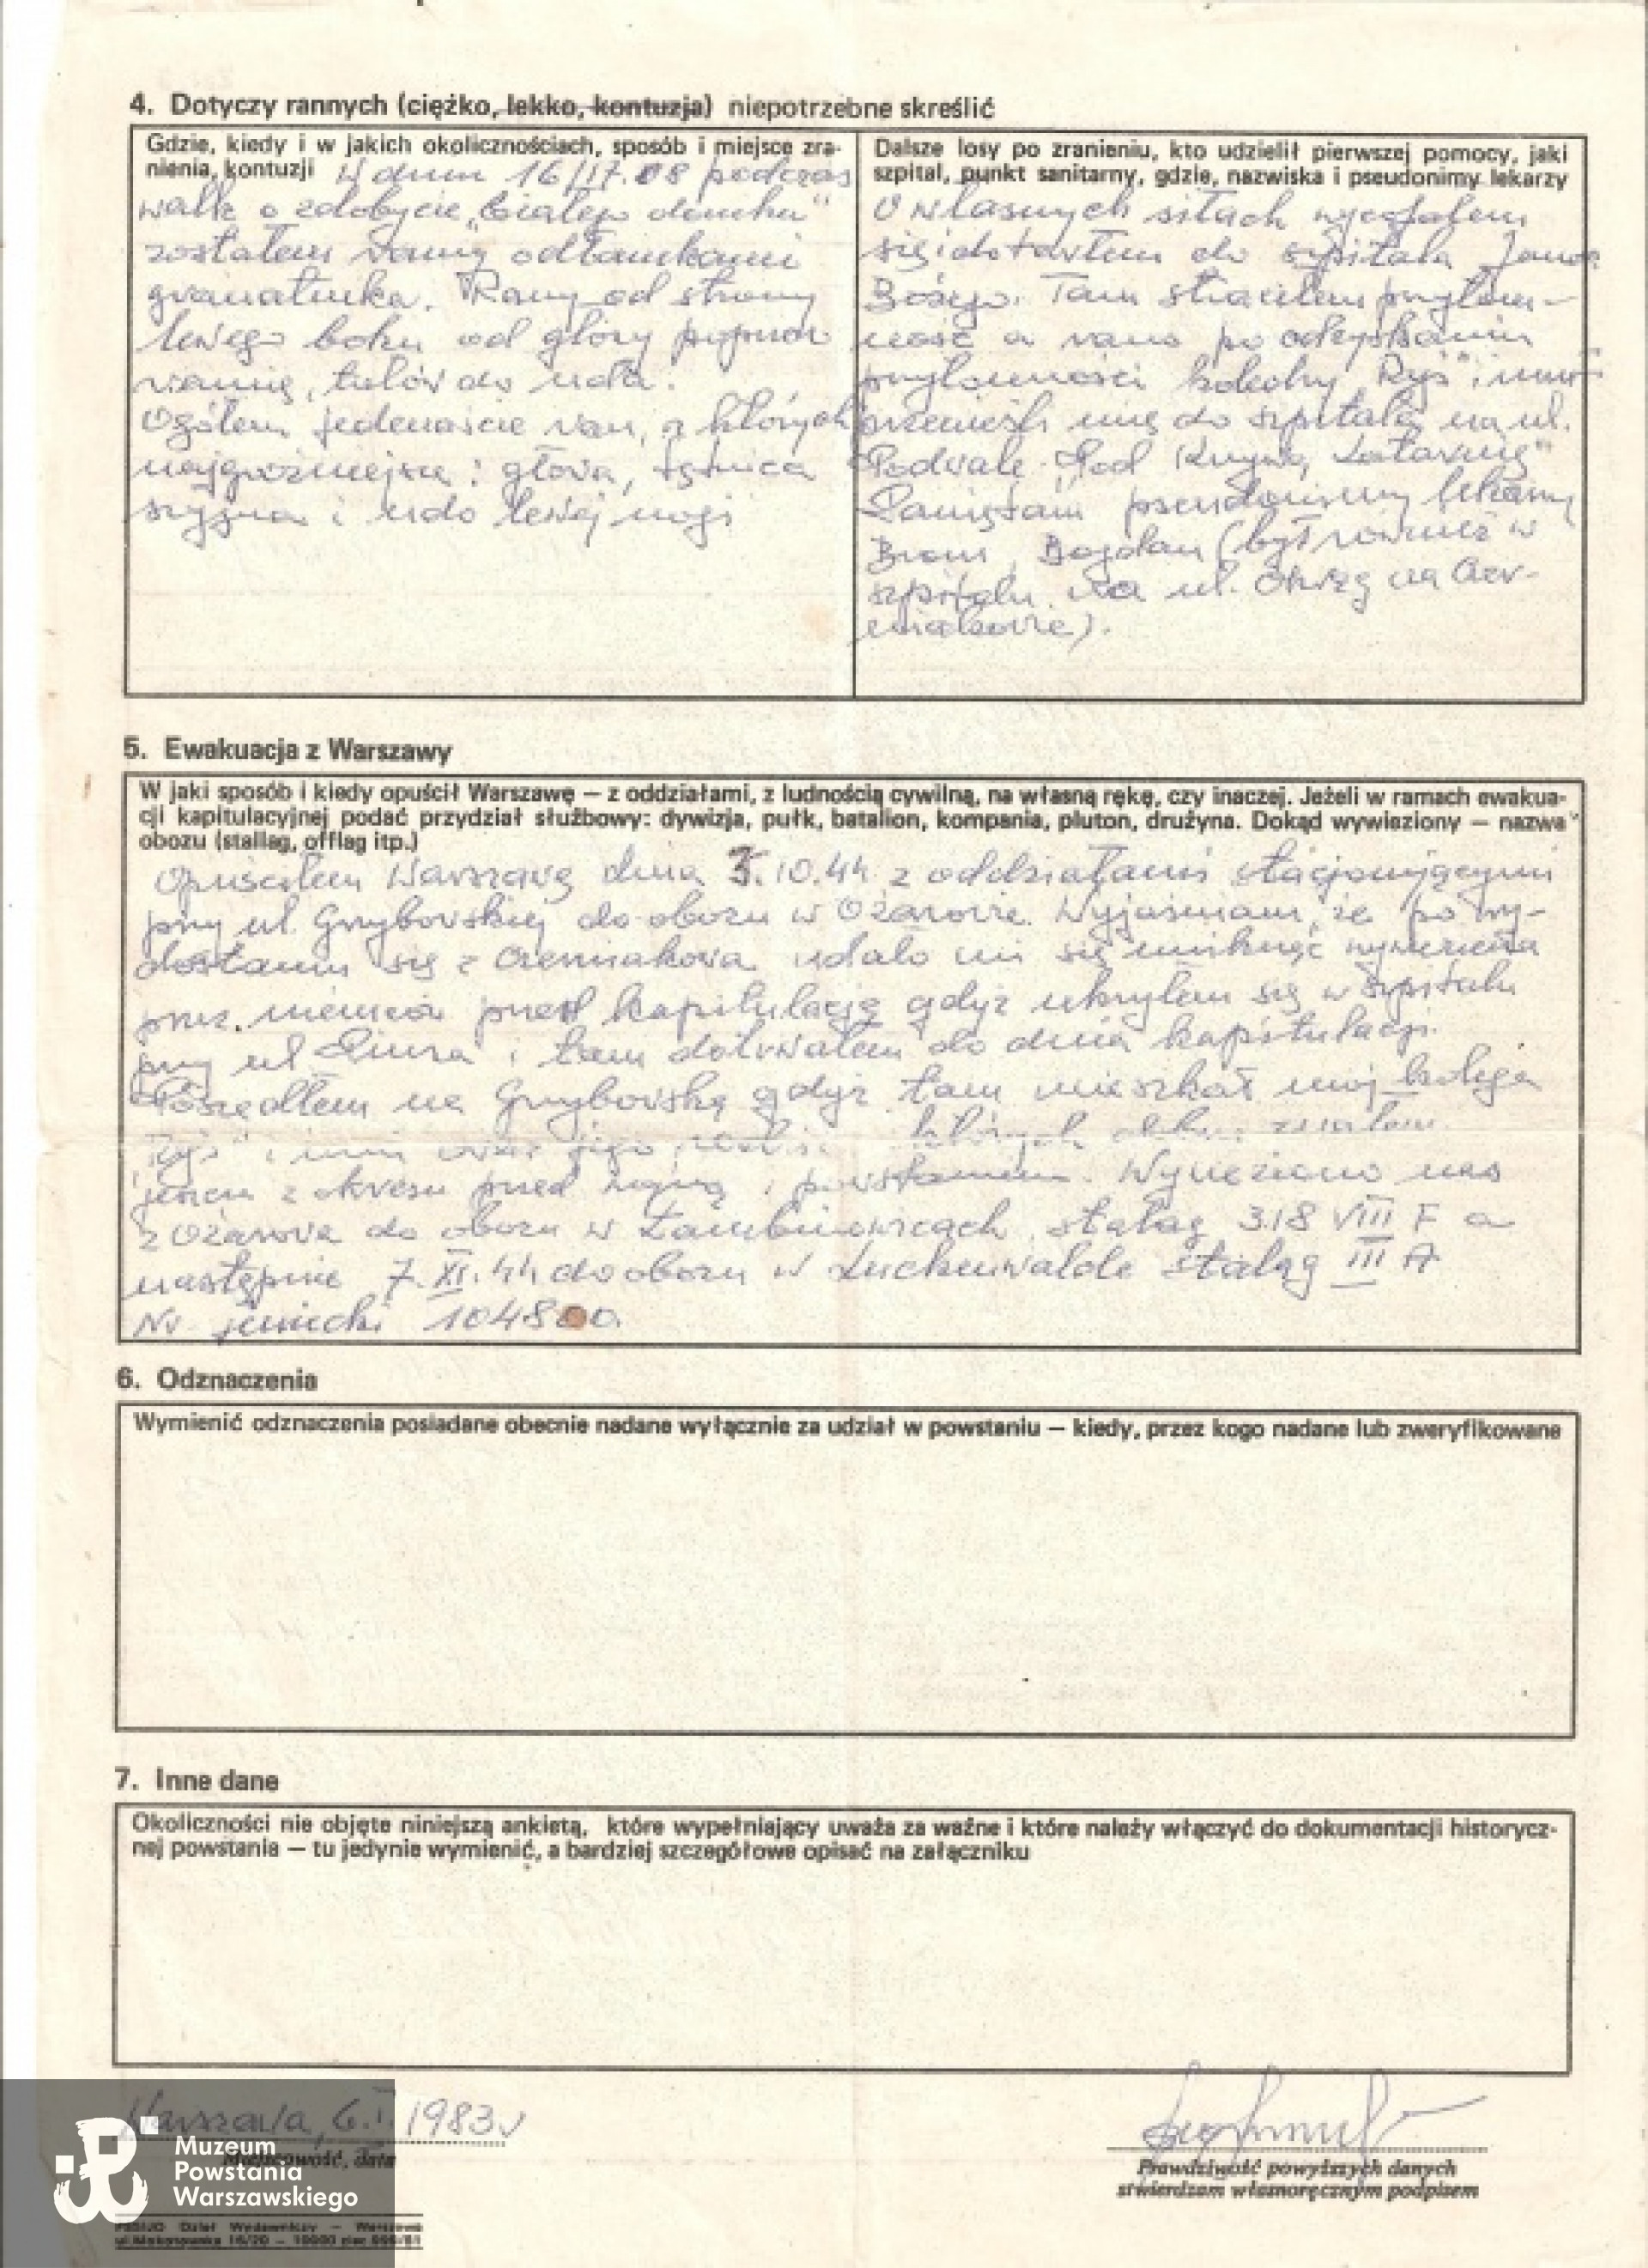 4. Dotyczy rannych (ciężko, lekko, kontuzja) niepotrzebne skreślić
Gdzie, kiedy i w jakich okolicznościach, sposób i miejsce zra-
nienia, kontuzji W dniu 16/17.08 podczas
walk o zdobycie „białego domku”
zostałem ranny odłamkami
granatnika. Rany od strony
lewego boku od głowy poprzez
ramię, tułów do uda.
Ogółem jedenaście ran, z których
najgroźniejsze: głowa, tętnica
szyjna i udo lewej nogi
Dalsze losy po zranieniu, kto udzielił pierwszej pomocy, jaki
szpital, punkt sanitarny, gdzie, nazwiska i pseudonimy lekarzy
O własnych siłach wycofałem
się i dotarłem do szpitala Jana
Bożego. Tam straciłem przytom-
ność a rano po odzyskaniu
przytomności koledzy „Ryś” i inni
przenieśli mnie do szpitala na ul.
Podwale „Pod Krzywą Latarnią”
Pamiętam pseudonimy lekarzy
Bogdan (był również w
szpitalu na ul. Okrąg na Czer-
niakowie).
5. Ewakuacja z Warszawy
W jaki sposób i kiedy opuścił Warszawę — z oddziałami, z ludnością cywilną, na własną rękę, czy inaczej. Jeżeli w ramach ewakua-
cji kapitulacyjnej podać przydział służbowy: dywizja, pułk, batalion, kompania, pluton, drużyna. Dokąd wywieziony — nazwa
obozu (stallag, offlag itp.)
Opuściłem Warszawę dnia 5.10.44 z oddziałami stacjonującymi
przy ul. Grzybowskiej do obozu w Ożarowie. Wyjaśniam, że po wy-
dostaniu się z Czerniakowa udało mi się uniknąć wywiezienia
przez niemców przed kapitulacją gdyż ukryłem się w szpitalu
przy ul. i tam dotrwałem do dnia kapitulacji.
Poszedłem na Grzybowską gdyż tam mieszkał mój kolega
„Ryś” i inni oraz jego których znałem
z okresu przed wojną i powstaniem. Wywieziono nas
z Ożarowa do obozu w Łambinowicach stalag 318 VIII F a
następnie 7.XI.44 do obozu w Luckenwalde stalag III A
Nr jeniecki 104800.
6. Odznaczenia
Wymienić odznaczenia posiadane obecnie nadane wyłącznie za udział w powstaniu — kiedy, przez kogo nadane lub zweryfikowane
7. Inne dane
Okoliczności nie objęte niniejszą ankietą, które wypełniający uważa za ważne i które należy włączyć do dokumentacji historycz-
nej powstania — tu jedynie wymienić, a bardziej szczegółowe opisać na załączniku
Warszawa, 6.I.1983r
Miejscowość, data
Prawdziwość powyższych danych
stwierdzam własnoręcznym podpisem
Muzeum
Powstania
Warszawskiego